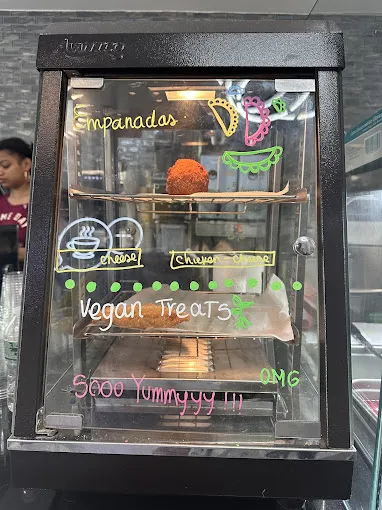 Empanadas
cheese
chicken - cheese
Vegan Treats
OMG
Sooo Yummyyy !!!